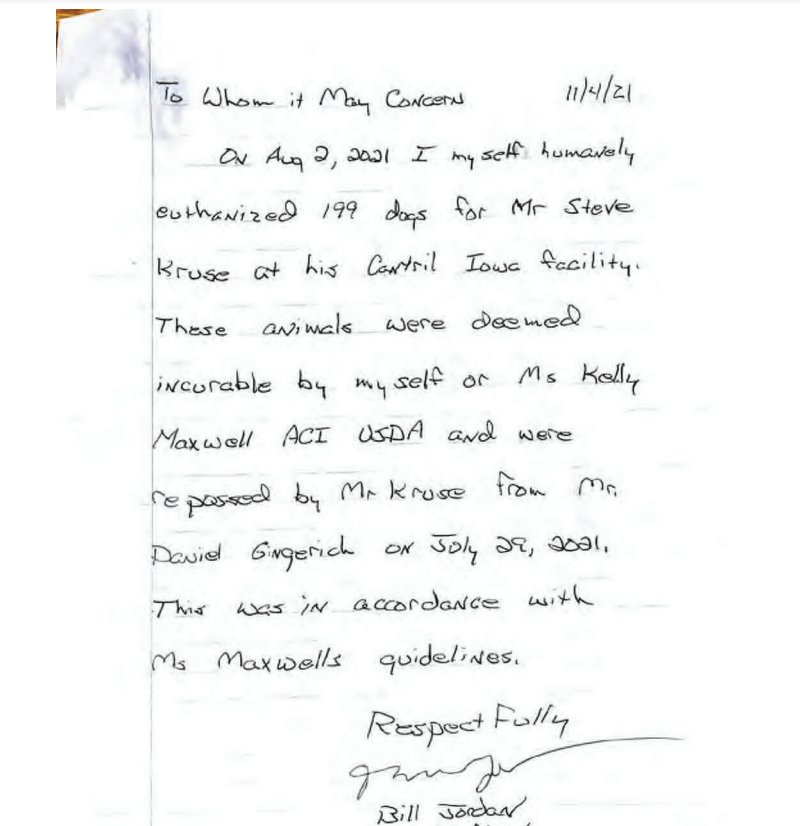 To Whom it May Concern 11/4/21
On Aug 2, 2021 I my self humanely
euthanized 199 dogs for Mr Steve
Kruse at his Cantril Iowa facility.
These animals were deemed
incurable by my self or Ms Kelly
Maxwell ACI USDA and were
repossed by Mr Kruse from Mr.
David Gingerich on July 29, 2021.
This was in accordance with
Ms Maxwells guidelines.
Respect Fully
Bill Jordan